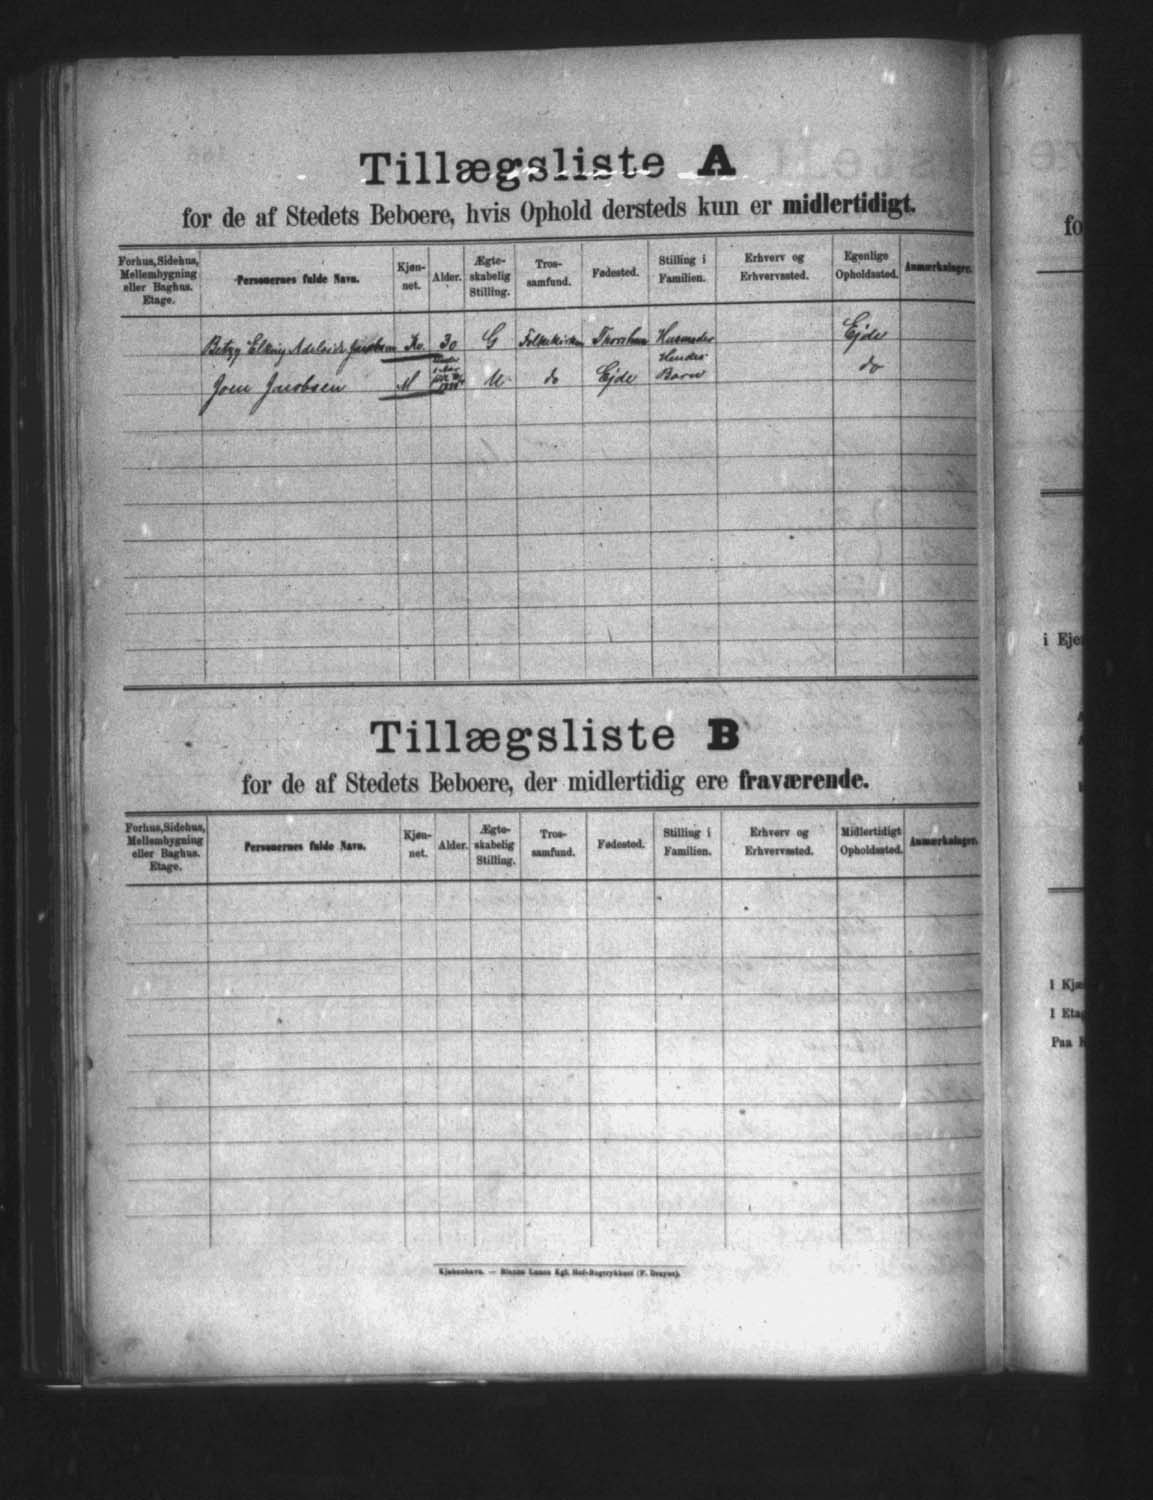 Tillægsliste A
for de af Stedets Beboere, hvis Ophold dersteds kun er midlertidigt.
Forhus, Sidehus, Mellembygning eller Baghus. Etage. Personernes fulde Navn. Kjøn- net. Alder. Ægte- skabelig Stilling. Tros- samfund. Fødested. Stilling i Familien. Erhverv og Erhvervssted. Egenlige Opholdssted. Anmærkninger.
Betzy Adelaide Jacobsen Kv. 30 G Folkekirken Thorshavn Husmoder Ejde
Joen Jacobsen M U do Ejde Hendes Barn do
Tillægsliste B
for de af Stedets Beboere, der midlertidig ere fraværende.
Forhus, Sidehus, Mellembygning eller Baghus. Etage. Personernes fulde Navn. Kjøn- net. Alder. Ægte- skabelig Stilling. Tros- samfund. Fødested. Stilling i Familien. Erhverv og Erhvervssted. Midlertidigt Opholdssted. Anmærkninger.
Kjøbenhavn. — Bianco Lunos Kgl. Hof-Bogtrykkeri (F. Dreyer).
fo
i Eje
I Kjæ
I Etag
Paa